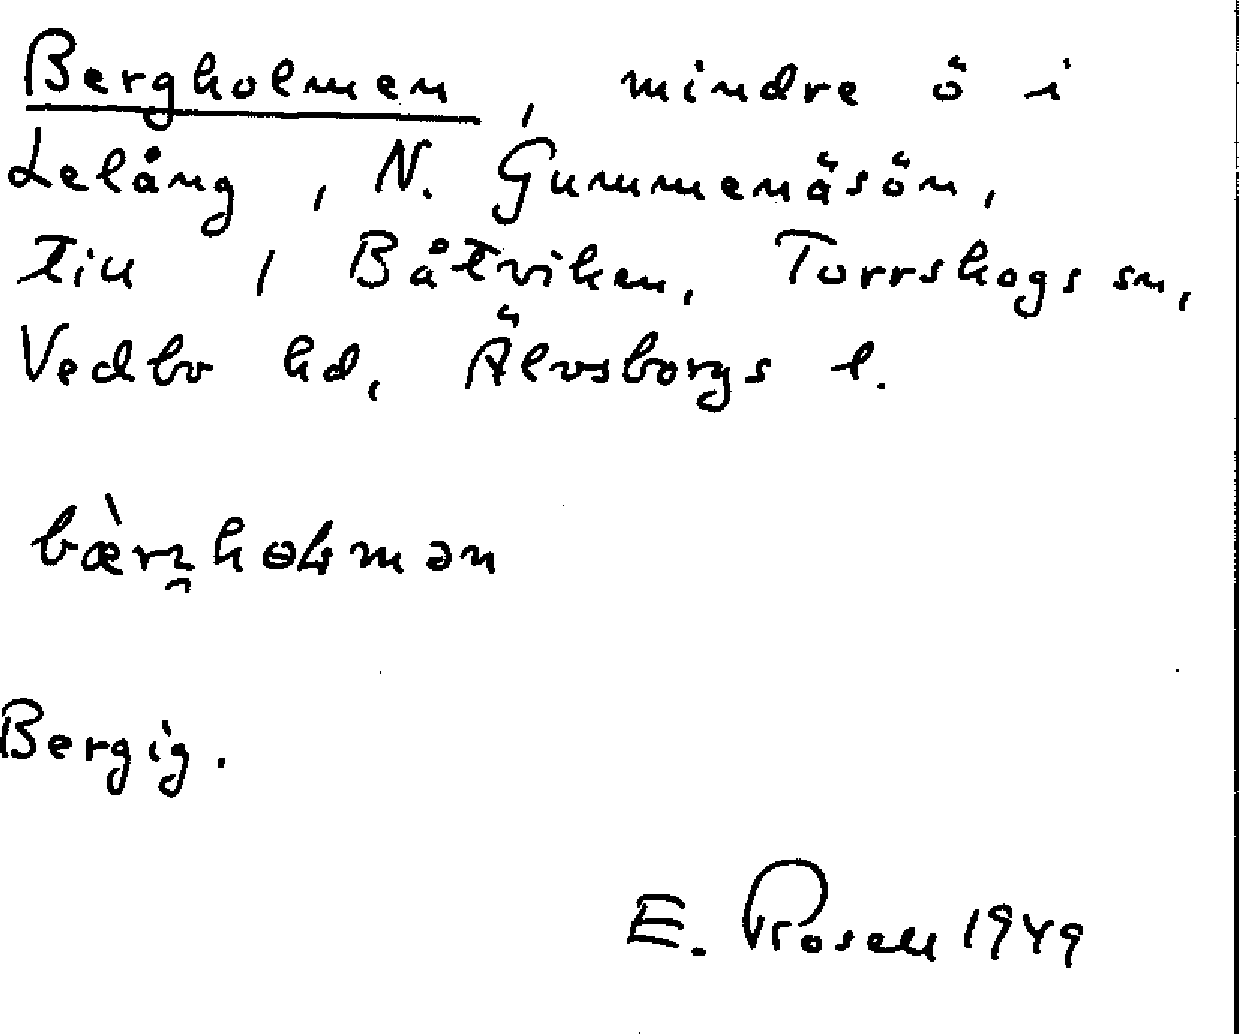 Bergholmen, mindre ö i
Lelång, N. Gummenäsön,
till 1 Båtviken, Torrskogs sn,
Vedbo hd, Älvsborgs l.
Bergig.
E. Rosell 1949